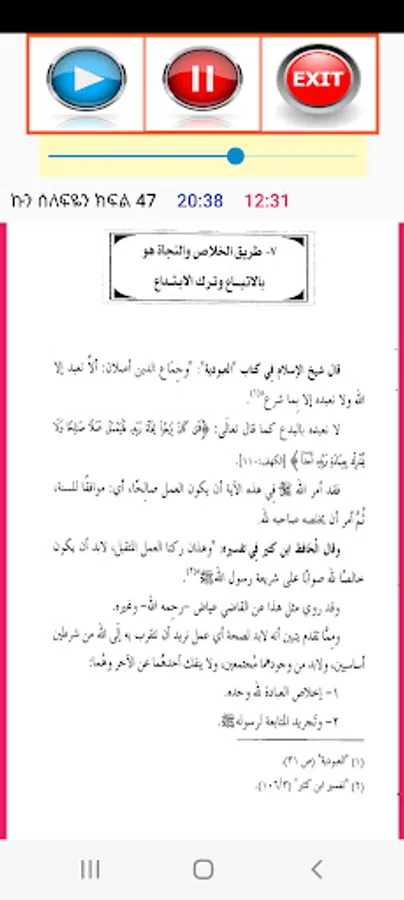 EXIT
ኩን ሰለፍዬን ክፍል 47 20:38 12:31
٧- طريق الخلاص والنجاة هو
بالاتباع وترك الابتداع
قال شيخ الإسلام في كتاب "العبودية": "وجِمَاع الدين أصلان: ألاَّ نعبد إلا
الله ولا نعبده إلا بِما شرع"(١).
لا نعبده بالبدع كما قال تعالَى: ﴿فَمَن كَانَ يَرْجُوا لِقَاءَ رَبِّهِ فَلْيَعْمَلْ عَمَلًا صَالِحًا وَلَا
يُشْرِكْ بِعِبَادَةِ رَبِّهِ أَحَدًا﴾ [الكهف:١١٠].
فقد أمر الله ﷻ فِي هذه الآية أن يكون العمل صالِحًا، أي: موافقًا للسنة،
ثُمَّ أمر أن يخلصه صاحبه لله.
وقال الْحَافظ ابن كثير فِي تفسيره: "وهذان ركنا العمل المتقبل، لابد أن يكون
خالصًا لله صوابًا على شريعة رسول الله ﷺ"(٢).
وقد روي مثل هذا عن القاضي عياض –رحمه الله– وغيره.
ومِمَّا تقدم يتبين أنه لابد لصحة أي عمل نريد أن نتقرب به إلَى الله من شرطين
أساسيين، ولابد من وجودهما مُجتمعين، ولا ينفك أحدهُما عن الآخر وهُما:
١- إخلاص العبادة لله وحده.
٢- وتَجريد المتابعة لرسوله ﷺ.
(١) "العبودية" (ص ٣١).
(٢) "تفسير ابن كثير" (١٠٦/٣).